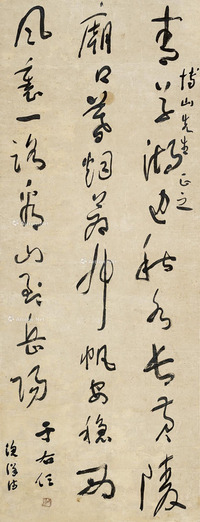 博山先生正之
青草湖邊秋水長黃陵
廟口暮烟蒼布帆安穩西
風裏一路看山到岳陽
于右任